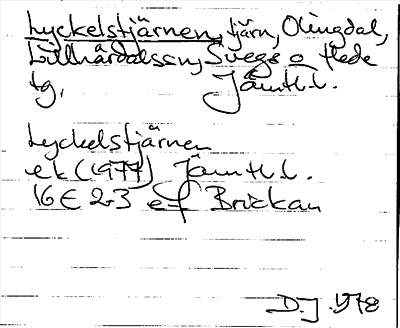 Lyckelstjärnen, tjärn, Olingdal,
Lillhärdalssn, Svegs o Hede
tg, Jämtl.l.
Lyckelstjärnen
ek (1977) Jämtl.l.
16E 2-3 e-f Brickan
D.J. 1978